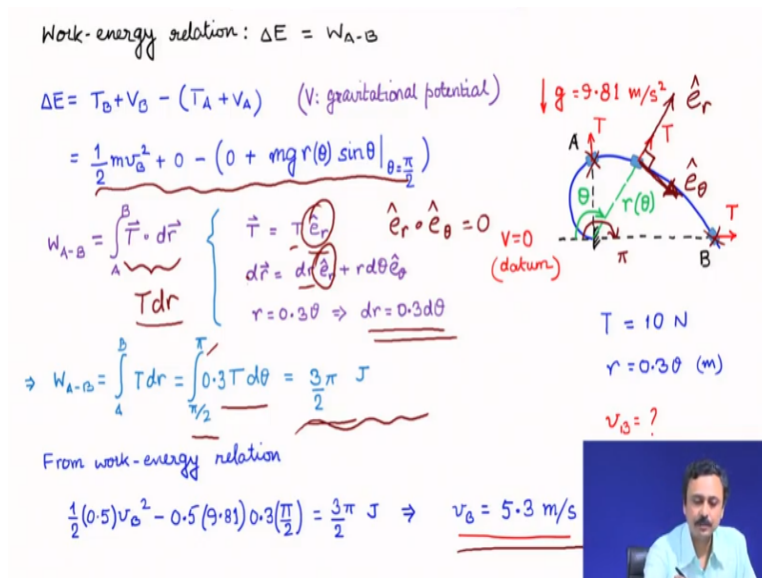 Work-energy relation: ΔE = W_{A-B}
ΔE = T_B + V_B − (T_A + V_A) (V: gravitational potential)
= 1/2 m v_B² + 0 − (0 + mg r(θ) sinθ|_{θ=π/2})
W_{A-B} = ∫_A^B T⃗ • dr⃗
T dr
T⃗ = T ê_r
dr⃗ = dr ê_r + r dθ ê_θ
r = 0.3θ ⇒ dr = 0.3dθ
ê_r • ê_θ = 0
⇒ W_{A-B} = ∫_A^B T dr = ∫_{π/2}^π 0.3 T dθ = 3/2 π J
From work-energy relation
1/2 (0.5) v_B² − 0.5(9.81) 0.3(π/2) = 3π/2 J ⇒ v_B = 5.3 m/s
↓ g = 9.81 m/s²
ê_r
A
T
T
ê_θ
θ
r(θ)
T
V=0
(datum)
π
B
T = 10 N
r = 0.3θ (m)
v_B = ?